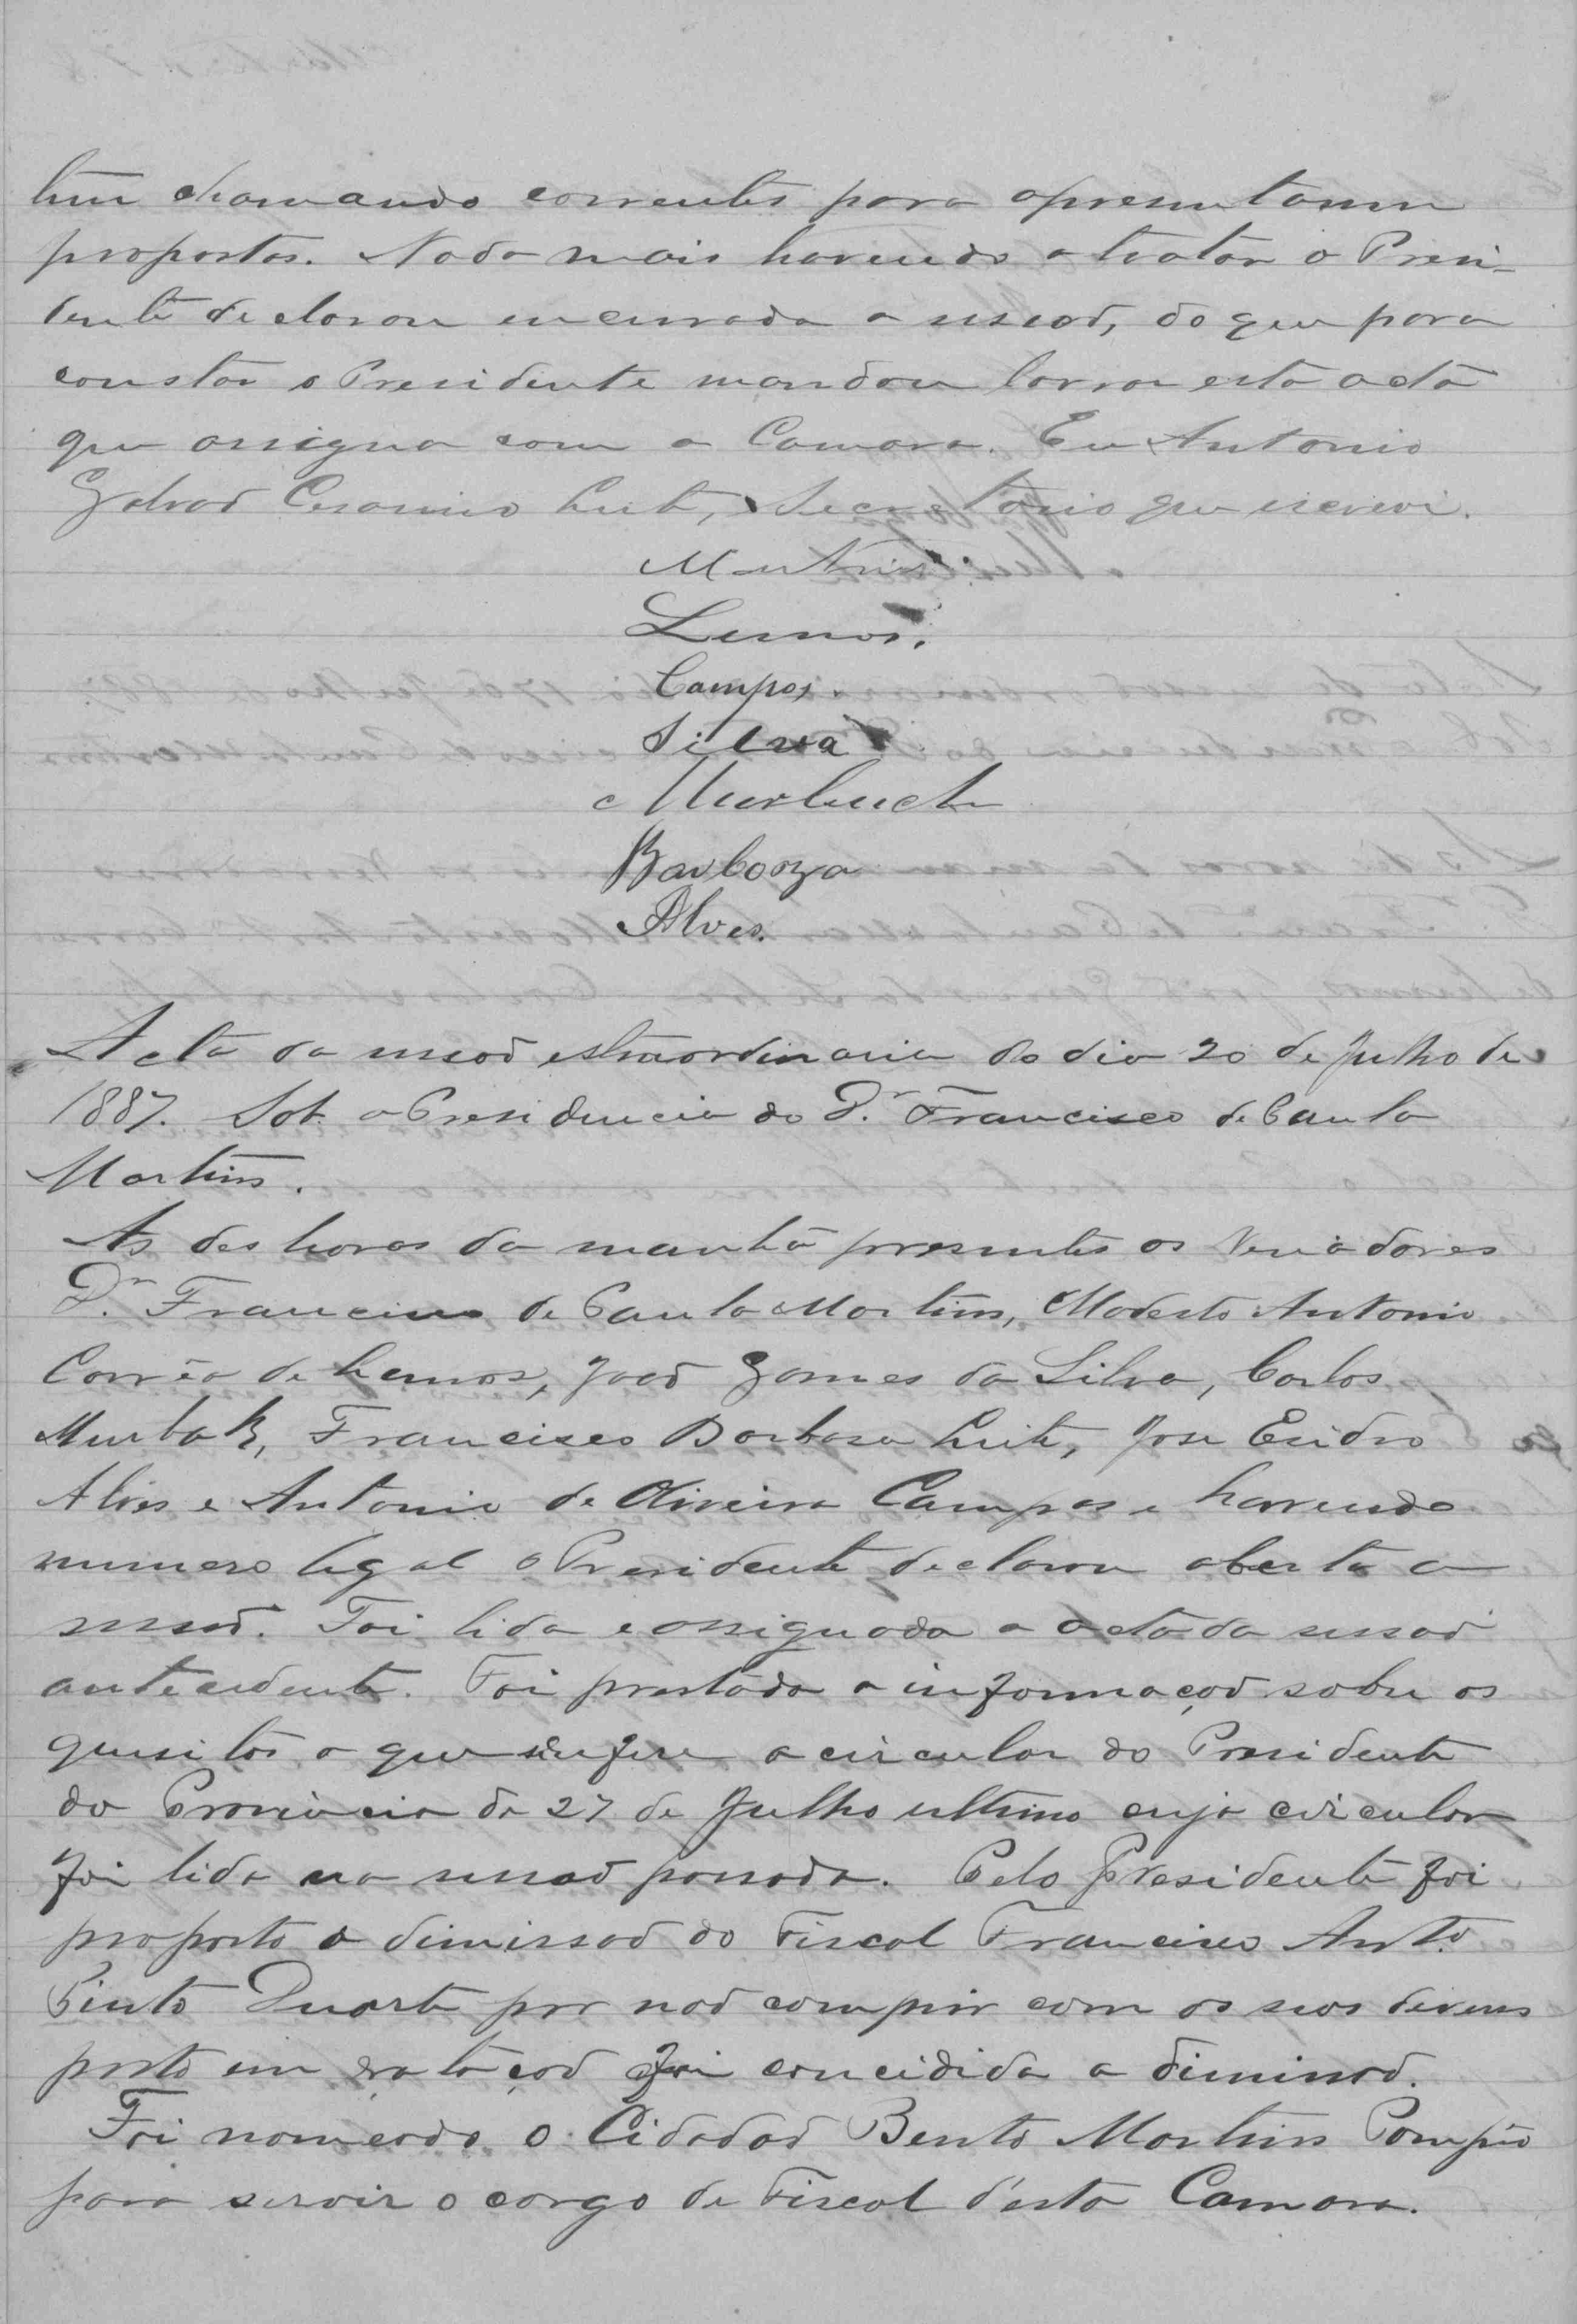 tim chamando correntes para apresentarem
propostas. Nada mais havendo a tratar o Presi-
dente declarou encerrada a sessaõ, do que para
constar o Presidente mandou lavrar esta acta
que assigna com a Camara. Eu Antonio
Galvaõ Cesarino Leite, Secretario que escrevi.
Martins.
Lemos.
Campos.
Silva
Murbuch
Barboza
Alves.
Acta da sessaõ extraordinaria do dia 20 de Julho de
1887. Sob a Presidencia do Dr. Francisco de Paula
Martins.
As des horas da manhã presentes os Veriadores
Dr. Francisco de Paula Martins, Modesto Antonio
Corrêa de Lemos, Joaõ Gomes da Silva, Carlos
Murbak, Francisco Barbosa Leite, Jose Esidro
Alves e Antonio de Oliveira Campos e havendo
numero legal o Presidente declarou aberta a
sessaõ. Foi lida e assignada a acta da sessaõ
antecedente. Foi prestada a informaçaõ sobre os
quesitos a que se refere a circular do Presidente
da Provincia de 27 de Julho ultimo cuja circular
foi lida na sessaõ passada. Pelo Presidente foi
proposto a dimissaõ do Fiscal Francisco Antº
Pinto Duarte por naõ comprir com os seos deveres
posto em votaçaõ foi concidida a dimissaõ.
Foi nomeado o Cidadaõ Bento Martins Pompêo
para servir o cargo de Fiscal d'esta Camara.